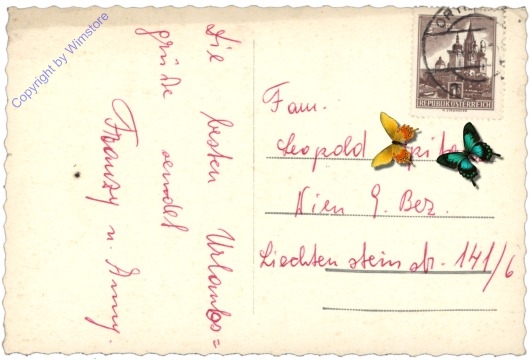 Copyright by Wimstore
Die besten Urlaubs=
grüße sendet
Franzy u. Anny.
REPUBLIK ÖSTERREICH
Fam.
Leopold
Wien 9. Bez.
Liechtensteinstr. 141/6